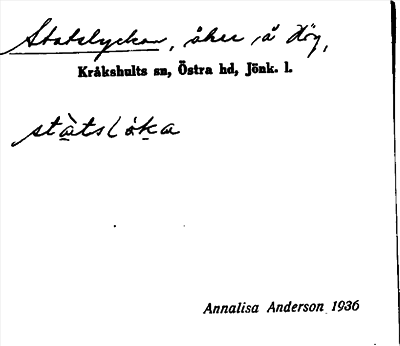 Statslyckan, åker å Hög,
Kråkshults sn, Östra hd, Jönk. l.
stàtslỏ̀ka
Annalisa Anderson 1936